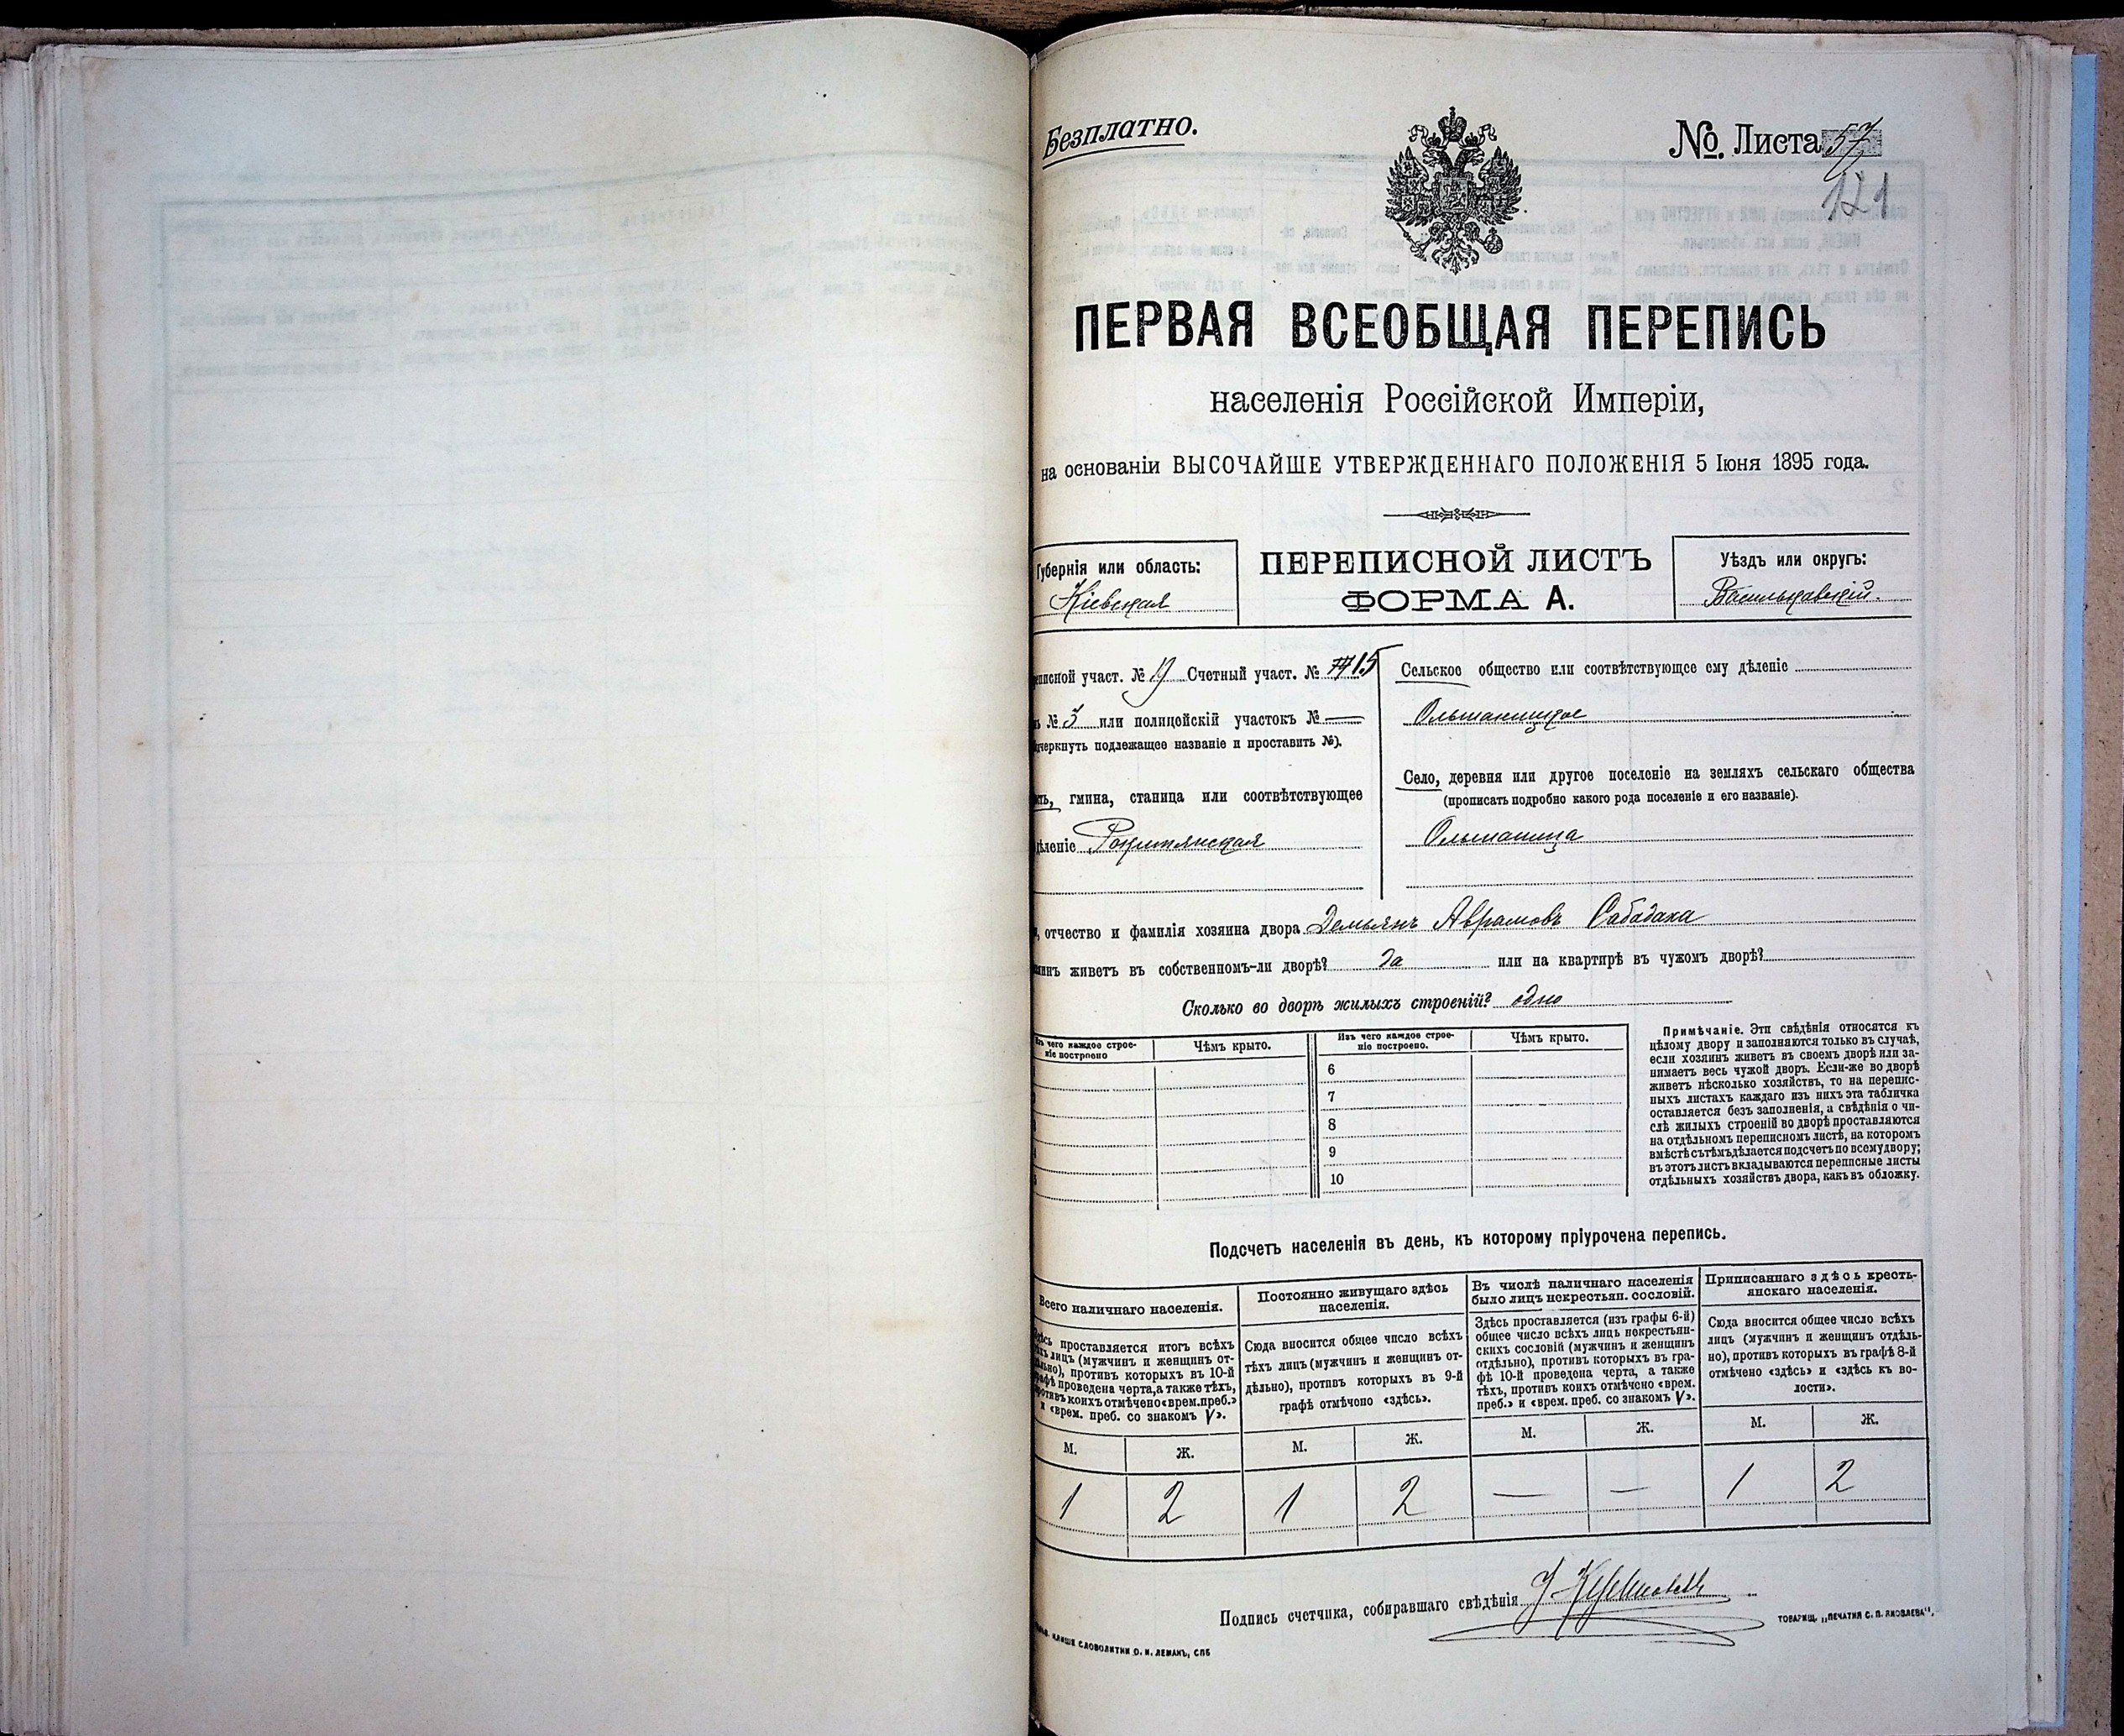 Безплатно.
№. Листа 57
121
ПЕРВАЯ ВСЕОБЩАЯ ПЕРЕПИСЬ
населенія Россійской Имперіи,
на основаніи ВЫСОЧАЙШЕ УТВЕРЖДЕННАГО ПОЛОЖЕНІЯ 5 Іюня 1895 года.
Губернія или область:
Кіевская
ПЕРЕПИСНОЙ ЛИСТЪ
ФОРМА А.
Уѣздъ или округъ:
Васильковскій.
писной участ. № 19 Счетный участ. № 15
№ 3 или полицейскій участокъ № —
черкнуть подлежащее названіе и проставить №).
гмина, станица или соотвѣтствующее
дѣленіе Рокитянская
Сельское общество или соотвѣтствующее ему дѣленіе
Ольшаницкое
Село, деревня или другое поселеніе на земляхъ сельскаго общества
(прописать подробно какого рода поселеніе и его названіе).
Ольшаница
отчество и фамилія хозяина двора Демьянъ Аврамовъ Сабадаха
живетъ въ собственномъ-ли дворѣ? да или на квартирѣ въ чужомъ дворѣ?
Сколько во дворѣ жилыхъ строеній? одно
Изъ чего каждое строе-
ніе построено
Чѣмъ крыто.
Изъ чего каждое строе-
ніе построено.
Чѣмъ крыто.
6
7
8
9
10
Примѣчаніе. Эти свѣдѣнія относятся къ
цѣлому двору и заполняются только въ случаѣ,
если хозяинъ живетъ въ своемъ дворѣ или за-
нимаетъ весь чужой дворъ. Если-же во дворѣ
живетъ нѣсколько хозяйствъ, то на перепис-
ныхъ листахъ каждаго изъ нихъ эта табличка
оставляется безъ заполненія, а свѣдѣнія о чи-
слѣ жилыхъ строеній во дворѣ проставляются
на отдѣльномъ переписномъ листѣ, на которомъ
вмѣстѣ съ тѣмъ дѣлается подсчетъ по всему двору;
въ этотъ листъ вкладываются переписные листы
отдѣльныхъ хозяйствъ двора, какъ въ обложку.
Подсчетъ населенія въ день, къ которому пріурочена перепись.
Всего наличнаго населенія.
Здѣсь проставляется итогъ всѣхъ
тѣхъ лицъ (мужчинъ и женщинъ от-
дѣльно), противъ которыхъ въ 10-й
графѣ проведена черта, а также тѣхъ,
противъ коихъ отмѣчено «врем. преб.»
и «врем. преб. со знакомъ V».
Постоянно живущаго здѣсь
населенія.
Сюда вносится общее число всѣхъ
тѣхъ лицъ (мужчинъ и женщинъ от-
дѣльно), противъ которыхъ въ 9-й
графѣ отмѣчено «здѣсь».
Въ числѣ наличнаго населенія
было лицъ некрестьян. сословій.
Здѣсь проставляется (изъ графы 6-й)
общее число всѣхъ лицъ некрестьян-
скихъ сословій (мужчинъ и женщинъ
отдѣльно), противъ которыхъ въ гра-
фѣ 10-й проведена черта, а также
тѣхъ, противъ коихъ отмѣчено «врем.
преб.» и «врем. преб. со знакомъ V».
Приписаннаго здѣсь кресть-
янскаго населенія.
Сюда вносится общее число всѣхъ
лицъ (мужчинъ и женщинъ отдѣль-
но), противъ которыхъ въ графѣ 8-й
отмѣчено «здѣсь» и «здѣсь къ во-
лости».
М. Ж. М. Ж. М. Ж. М. Ж.
1 2 1 2 — — 1 2
Подпись счетчика, собиравшаго свѣдѣнія
КЛИШЕ СЛОВОЛИТНИ О. И. ЛЕМАНЪ, СПБ
ТОВАРИЩ. „ПЕЧАТНЯ С. П. ЯКОВЛЕВА“.